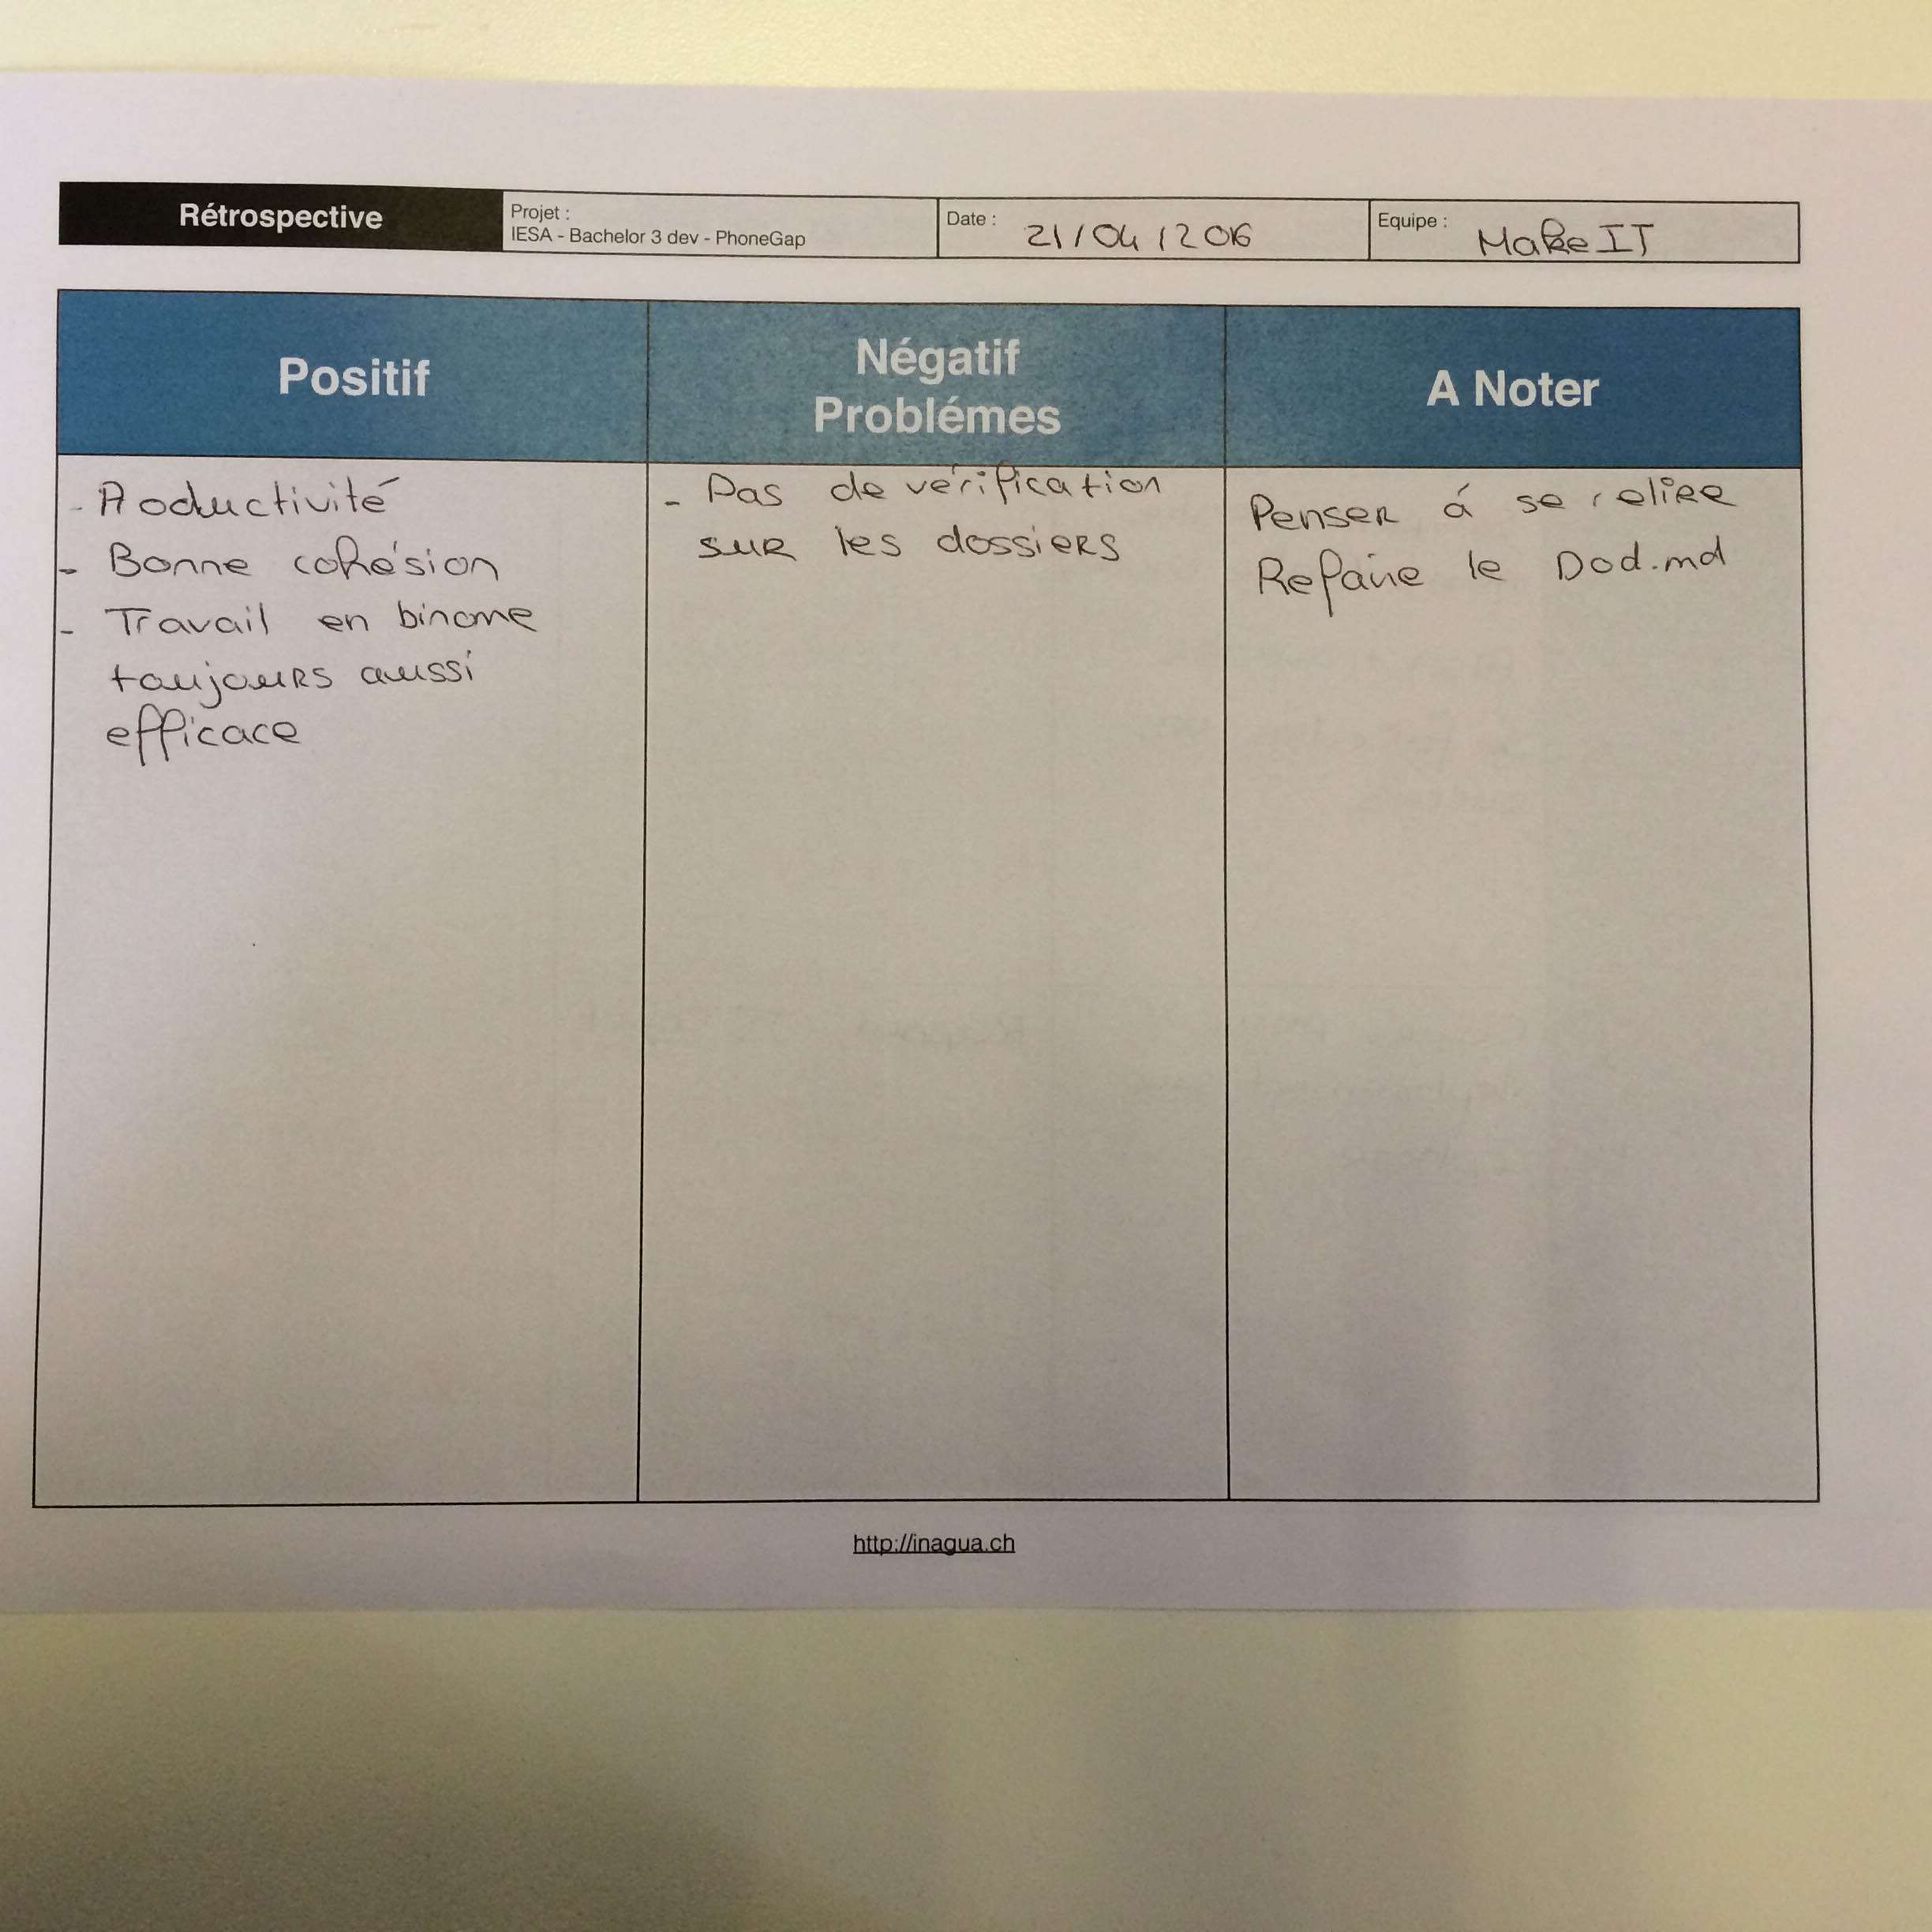 Rétrospective
Projet :
IESA - Bachelor 3 dev - PhoneGap
Date : 21/04/2016
Equipe : MakeIT
Positif
Négatif
Problémes
A Noter
- Productivité
- Bonne cohésion
- Travail en binome
toujours aussi
efficace
- Pas de vérification
sur les dossiers
Penser á se relire
Refaire le Dod.md
http://inagua.ch